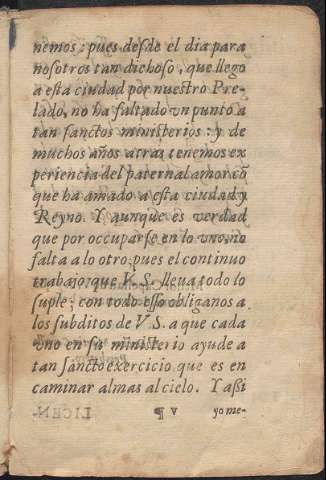 nemos: pues desde el dia para
nosotros tan dichoso, que llego
a esta ciudad por nuestro Pre-
lado, no ha faltado vn punto a
tan sanctos ministerios: y de
muchos años atras tenemos ex
periencia del paternal amor cõ
que ha amado a esta ciudad y
Reyno. Y aunque es verdad
que por occuparse en lo vno, no
falta a lo otro, pues el continuo
trabajo que V. S. lleua todo lo
suple: con todo esso obliganos a
los subditos de V S. a que cada
vno en su ministerio ayude a
tan sancto exercicio que es en
caminar almas al cielo. Y assi
¶ v yo me-